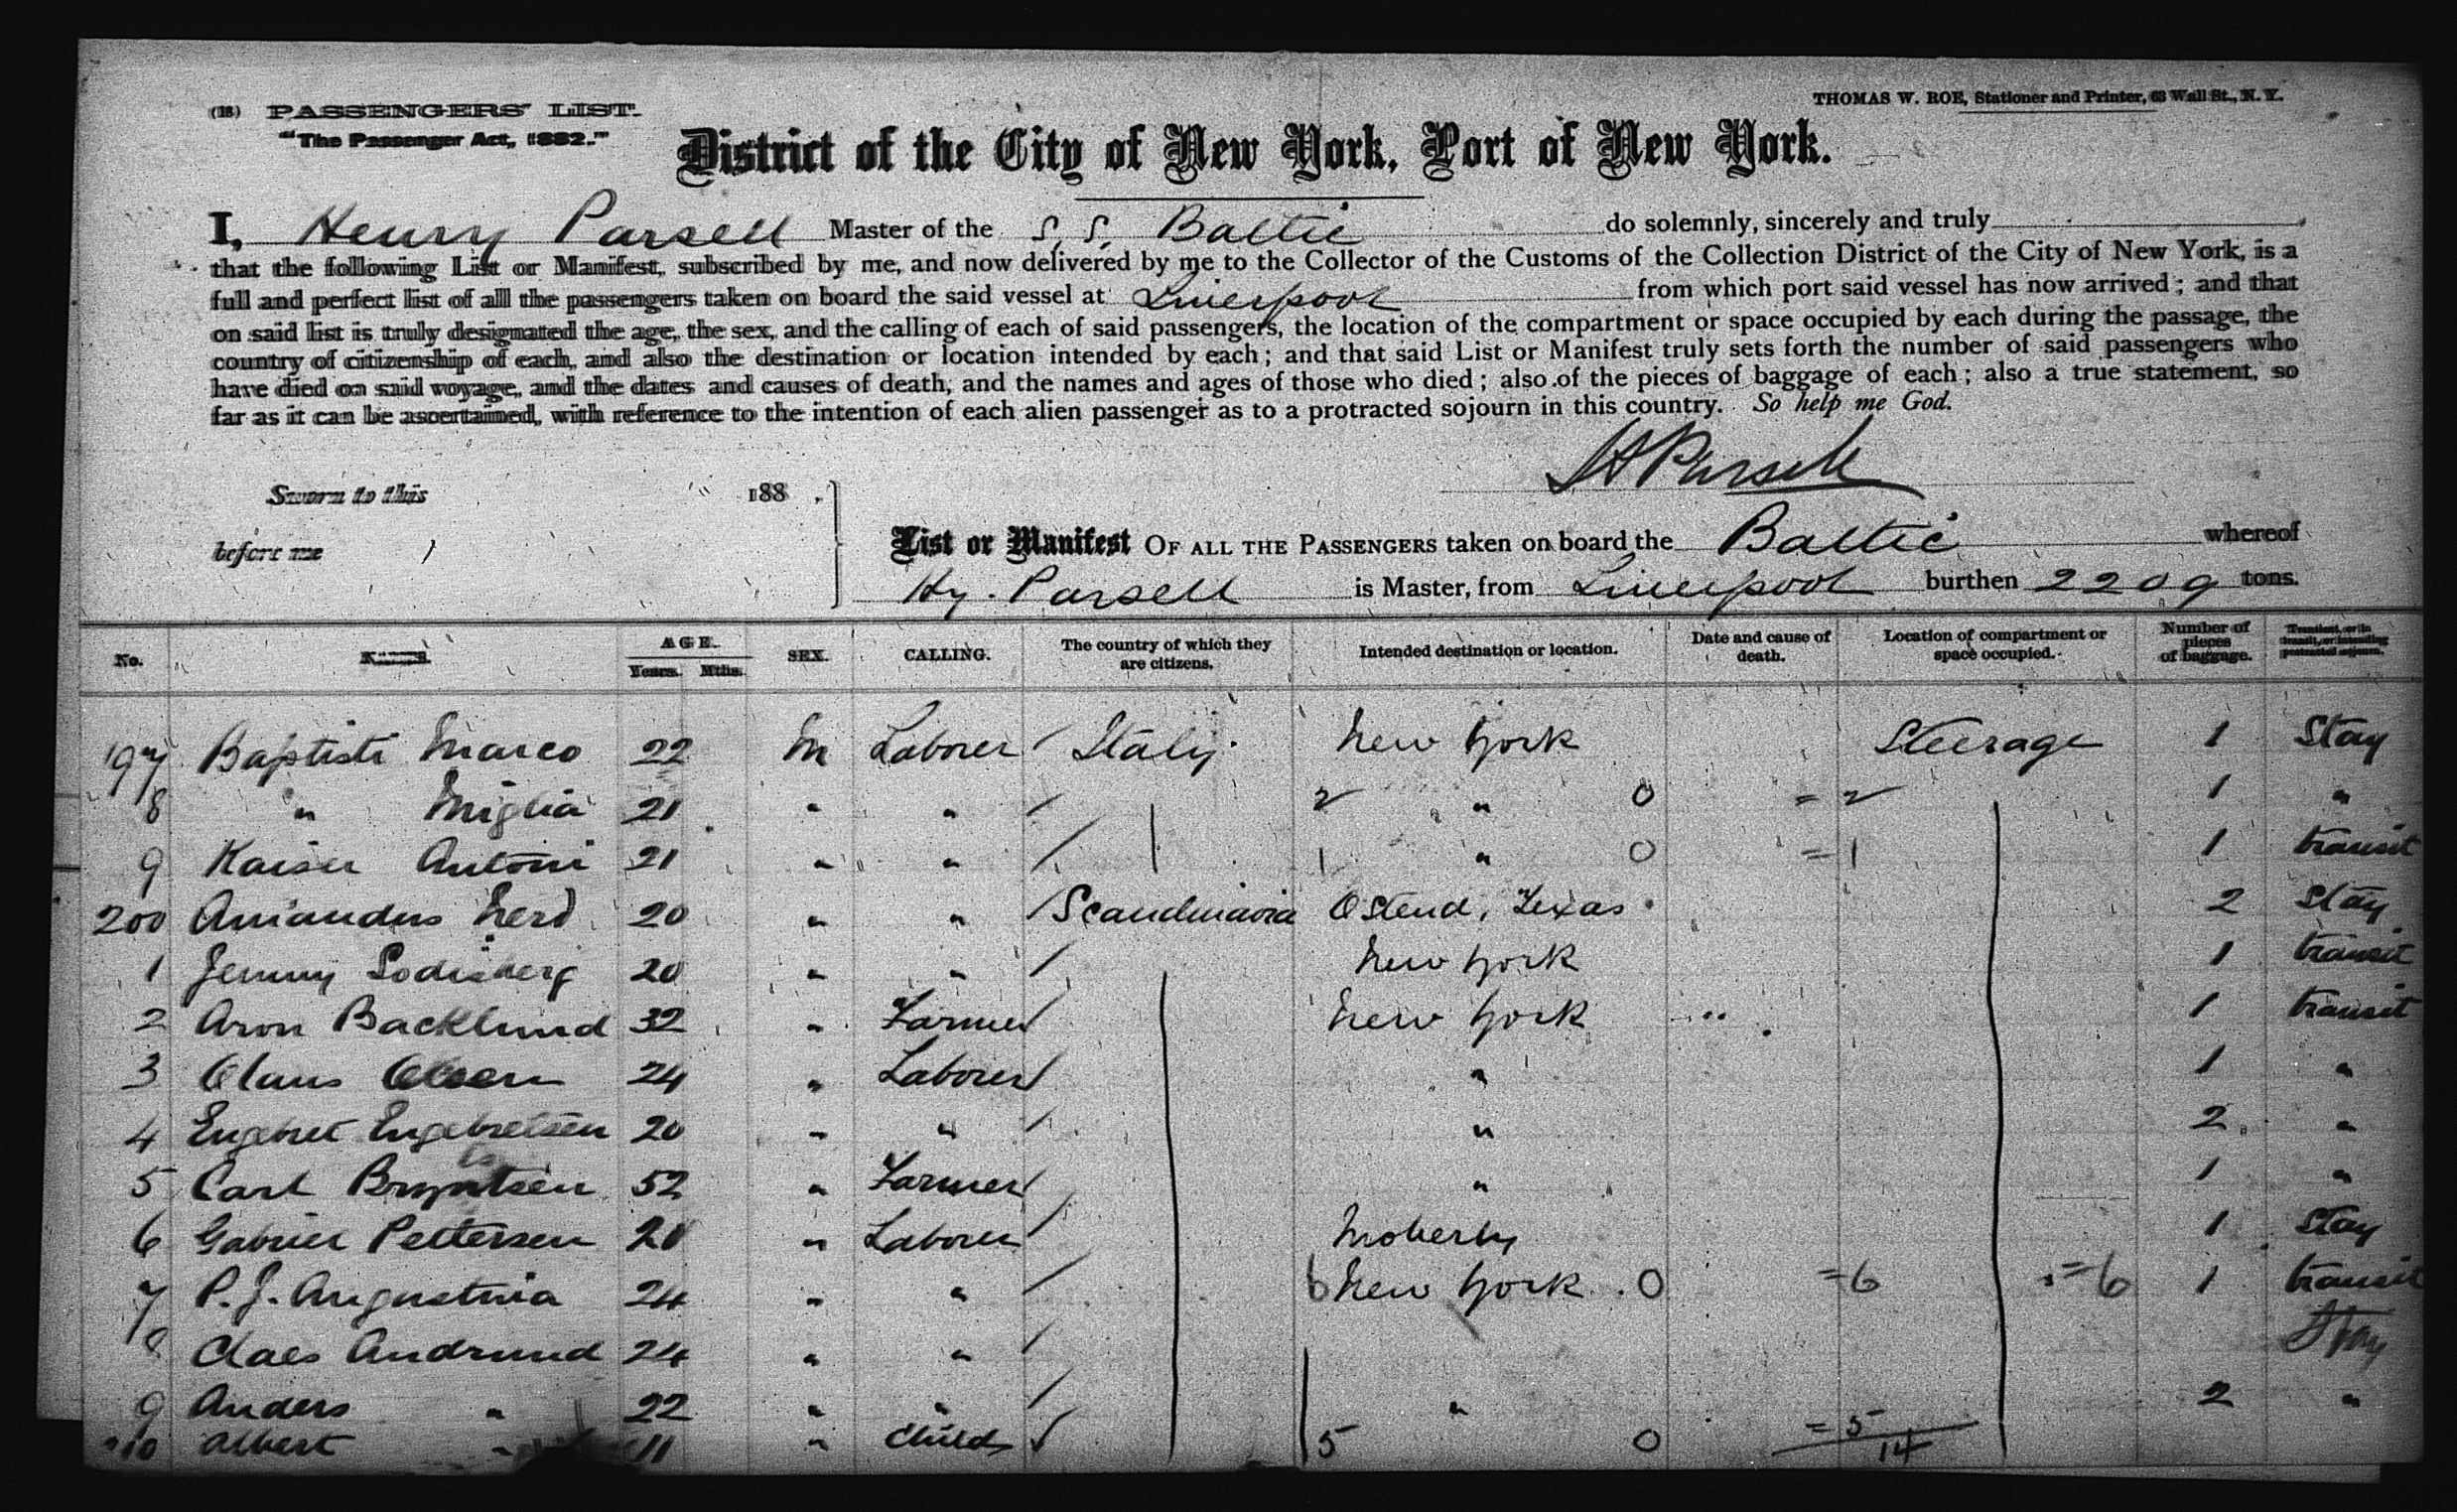 (18) PASSENGERS' LIST.
"The Passenger Act, 1882."
THOMAS W. ROE, Stationer and Printer, 63 Wall St., N. Y.
District of the City of New York, Port of New York.
I, Henry Parsell Master of the S. S. Baltic do solemnly, sincerely and truly
that the following List or Manifest, subscribed by me, and now delivered by me to the Collector of the Customs of the Collection District of the City of New York, is a
full and perfect list of all the passengers taken on board the said vessel at Liverpool from which port said vessel has now arrived; and that
on said list is truly designated the age, the sex, and the calling of each of said passengers, the location of the compartment or space occupied by each during the passage, the
country of citizenship of each, and also the destination or location intended by each; and that said List or Manifest truly sets forth the number of said passengers who
have died on said voyage, and the dates and causes of death, and the names and ages of those who died; also of the pieces of baggage of each; also a true statement, so
far as it can be ascertained, with reference to the intention of each alien passenger as to a protracted sojourn in this country. So help me God.
H Parsell
Sworn to this 188 .
before me
List or Manifest OF ALL THE PASSENGERS taken on board the Baltic whereof
Hy. Parsell is Master, from Liverpool burthen 2209 tons.
No. NAMES. AGE. Years. Mths. SEX. CALLING. The country of which they are citizens. Intended destination or location. Date and cause of death. Location of compartment or space occupied. Number of pieces of baggage. Transient, or in transit, or intending protracted sojourn.
197 Baptisti Marco 22 M Laborer / Italy New York Steerage 1 Stay
8 " Miglia 21 " " / 2 " 0 = 2 1 "
9 Kaiser Antoni 21 " " / 1 " 0 = 1 1 transit
200 Amandus 20 " " / Scandinavia Ostend, Texas 2 Stay
1 Jenny 20 " " / New York 1 transit
2 Aron Backlund 32 " Farmer / New York 1 transit
3 Olaus Olsen 24 " Laborer / " 1 "
4 Engebret Engebretsen 20 " " / " 2 "
5 Carl 52 " Farmer / " 1 "
6 Gabriel Pettersen 20 " Laborer / Moberly 1 Stay
7 P. J. Augustnia 24 " " / 6 New York 0 = 6 = 6 1 transit
8 Claes Andrund 24 " " / Stay
9 Anders " 22 " " / " 2 "
210 Albert " 11 " Childs / 5 0 = 5
14